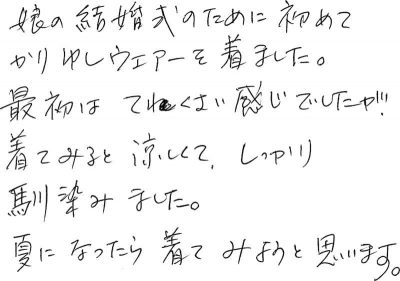 娘の結婚式のために初めて
かりゆしウェアーを着ました。
最初は てれくさい感じでしたが!!
着てみると 涼しくて、しっかり
馴染みました。
夏になったら着てみようと思います。